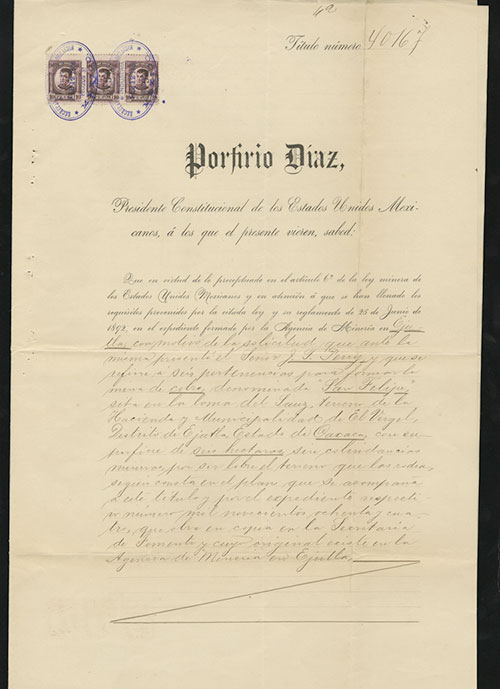 42
Título número 40167
Porfirio Díaz,
Presidente Constitucional de los Estados Unidos Mexi-
canos, á los que el presente vieren, sabed:
Que en virtud de lo preceptuado en el artículo 6º de la ley minera de
los Estados Unidos Mexicanos y en atención á que se han llenado los
requisitos prevenidos por la citada ley y su reglamento de 25 de Junio de
1892, en el expediente formado por la Agencia de Minería en Eju-
tla, con motivo de la solicitud que ante la
misma presentó el Señor J. P. y que se
refiere á seis pertenencias para formar la
mina de cobre, denominada "San Felipe,"
sita en la loma del Sauz, terreno de la
Hacienda y Municipalidad de El Vergel,
Distrito de Ejutla, Estado de Oaxaca, con su-
perficie de seis hectaras, sin colindancias
mineras por ser libre el terreno que las rodea,
según consta en el plano que se acompaña
á este título y por el expediente respecti-
vo número mil novecientos ochenta y cua-
tro, que obra en copia en la Secretaría
de Fomento y cuyo original existe en la
Agencia de Minería en Ejutla.